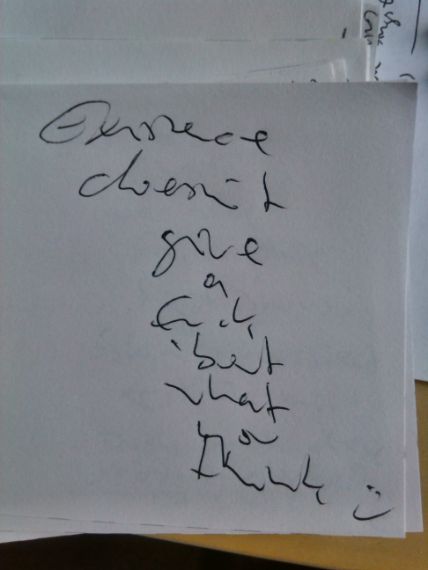 Existence
doesn't
give
a
fuck
'bout
what
you
think :)